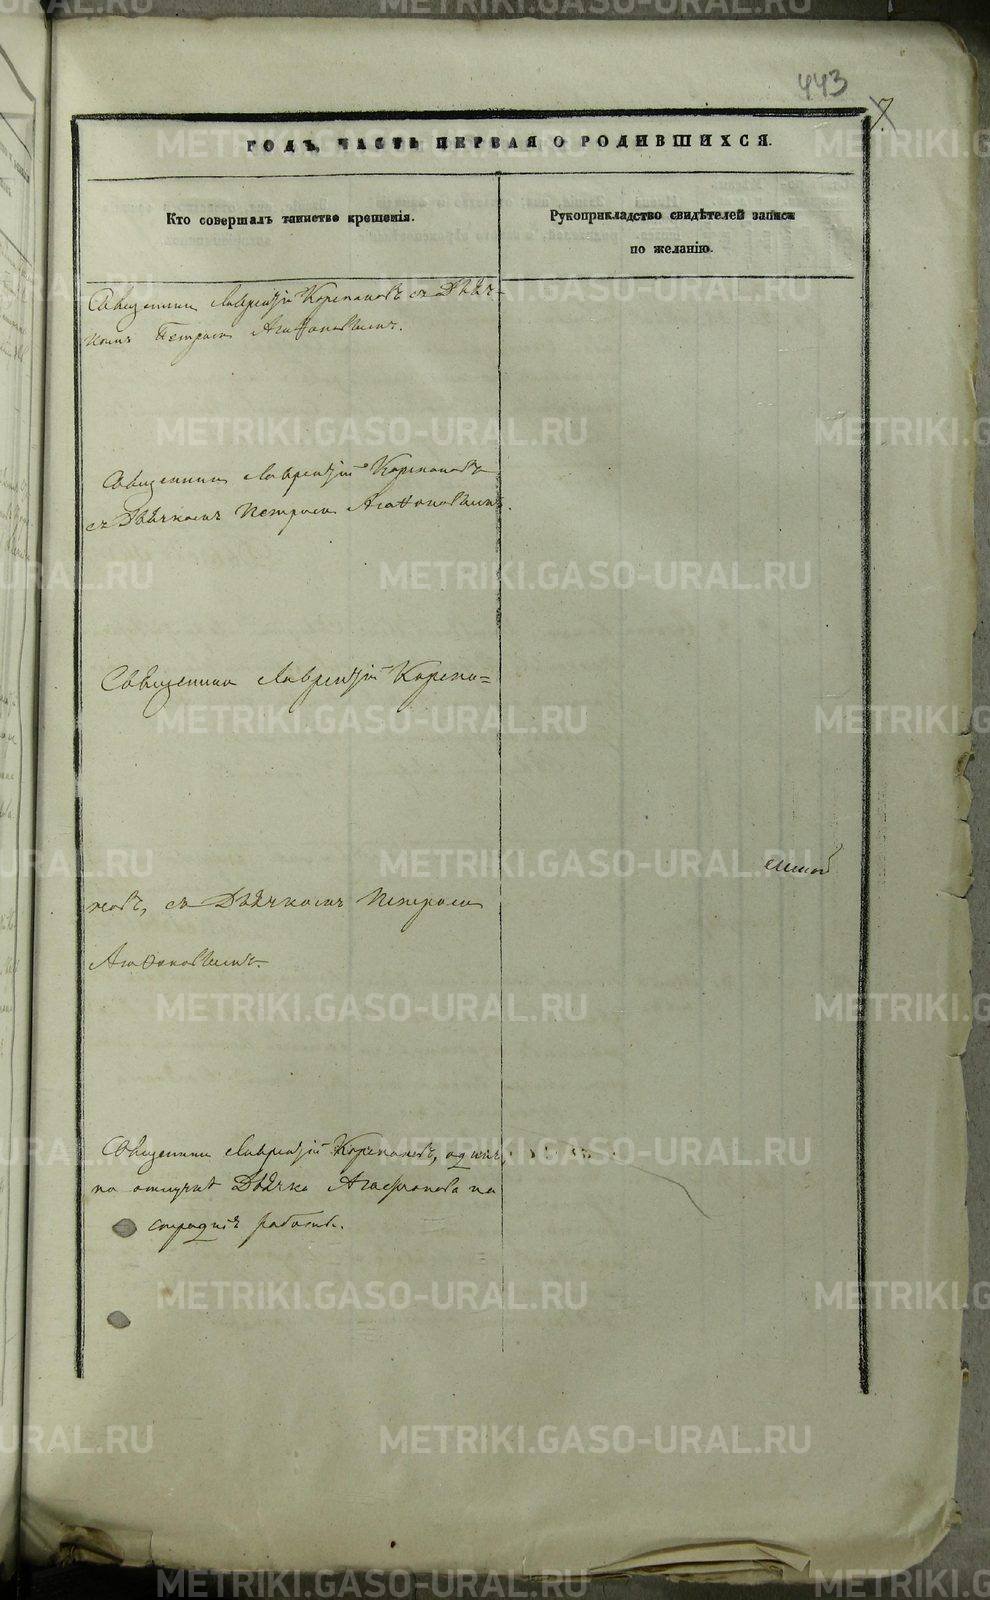 443
7
ГОДЪ, ЧАСТЬ ПЕРВАЯ О РОДИВШИХСЯ.
Кто совершалъ таинство крещенія.
Рукоприкладство свидѣтелей записи
по желанію.
Священникъ Лаврентій Корепановъ съ Дьяч-
комъ Петромъ Агафоновымъ.
Священникъ Лаврентій Корепановъ
съ Дьячкомъ Петромъ Агафоновымъ.
Священникъ Лаврентій Корепа=
новъ, съ Дьячкомъ Петромъ
Агафоновымъ.
Священникъ Лаврентій Корепановъ, одинъ,
по отлучкѣ Дьячка Агафонова на
работы.
METRIKI.GASO-URAL.RU